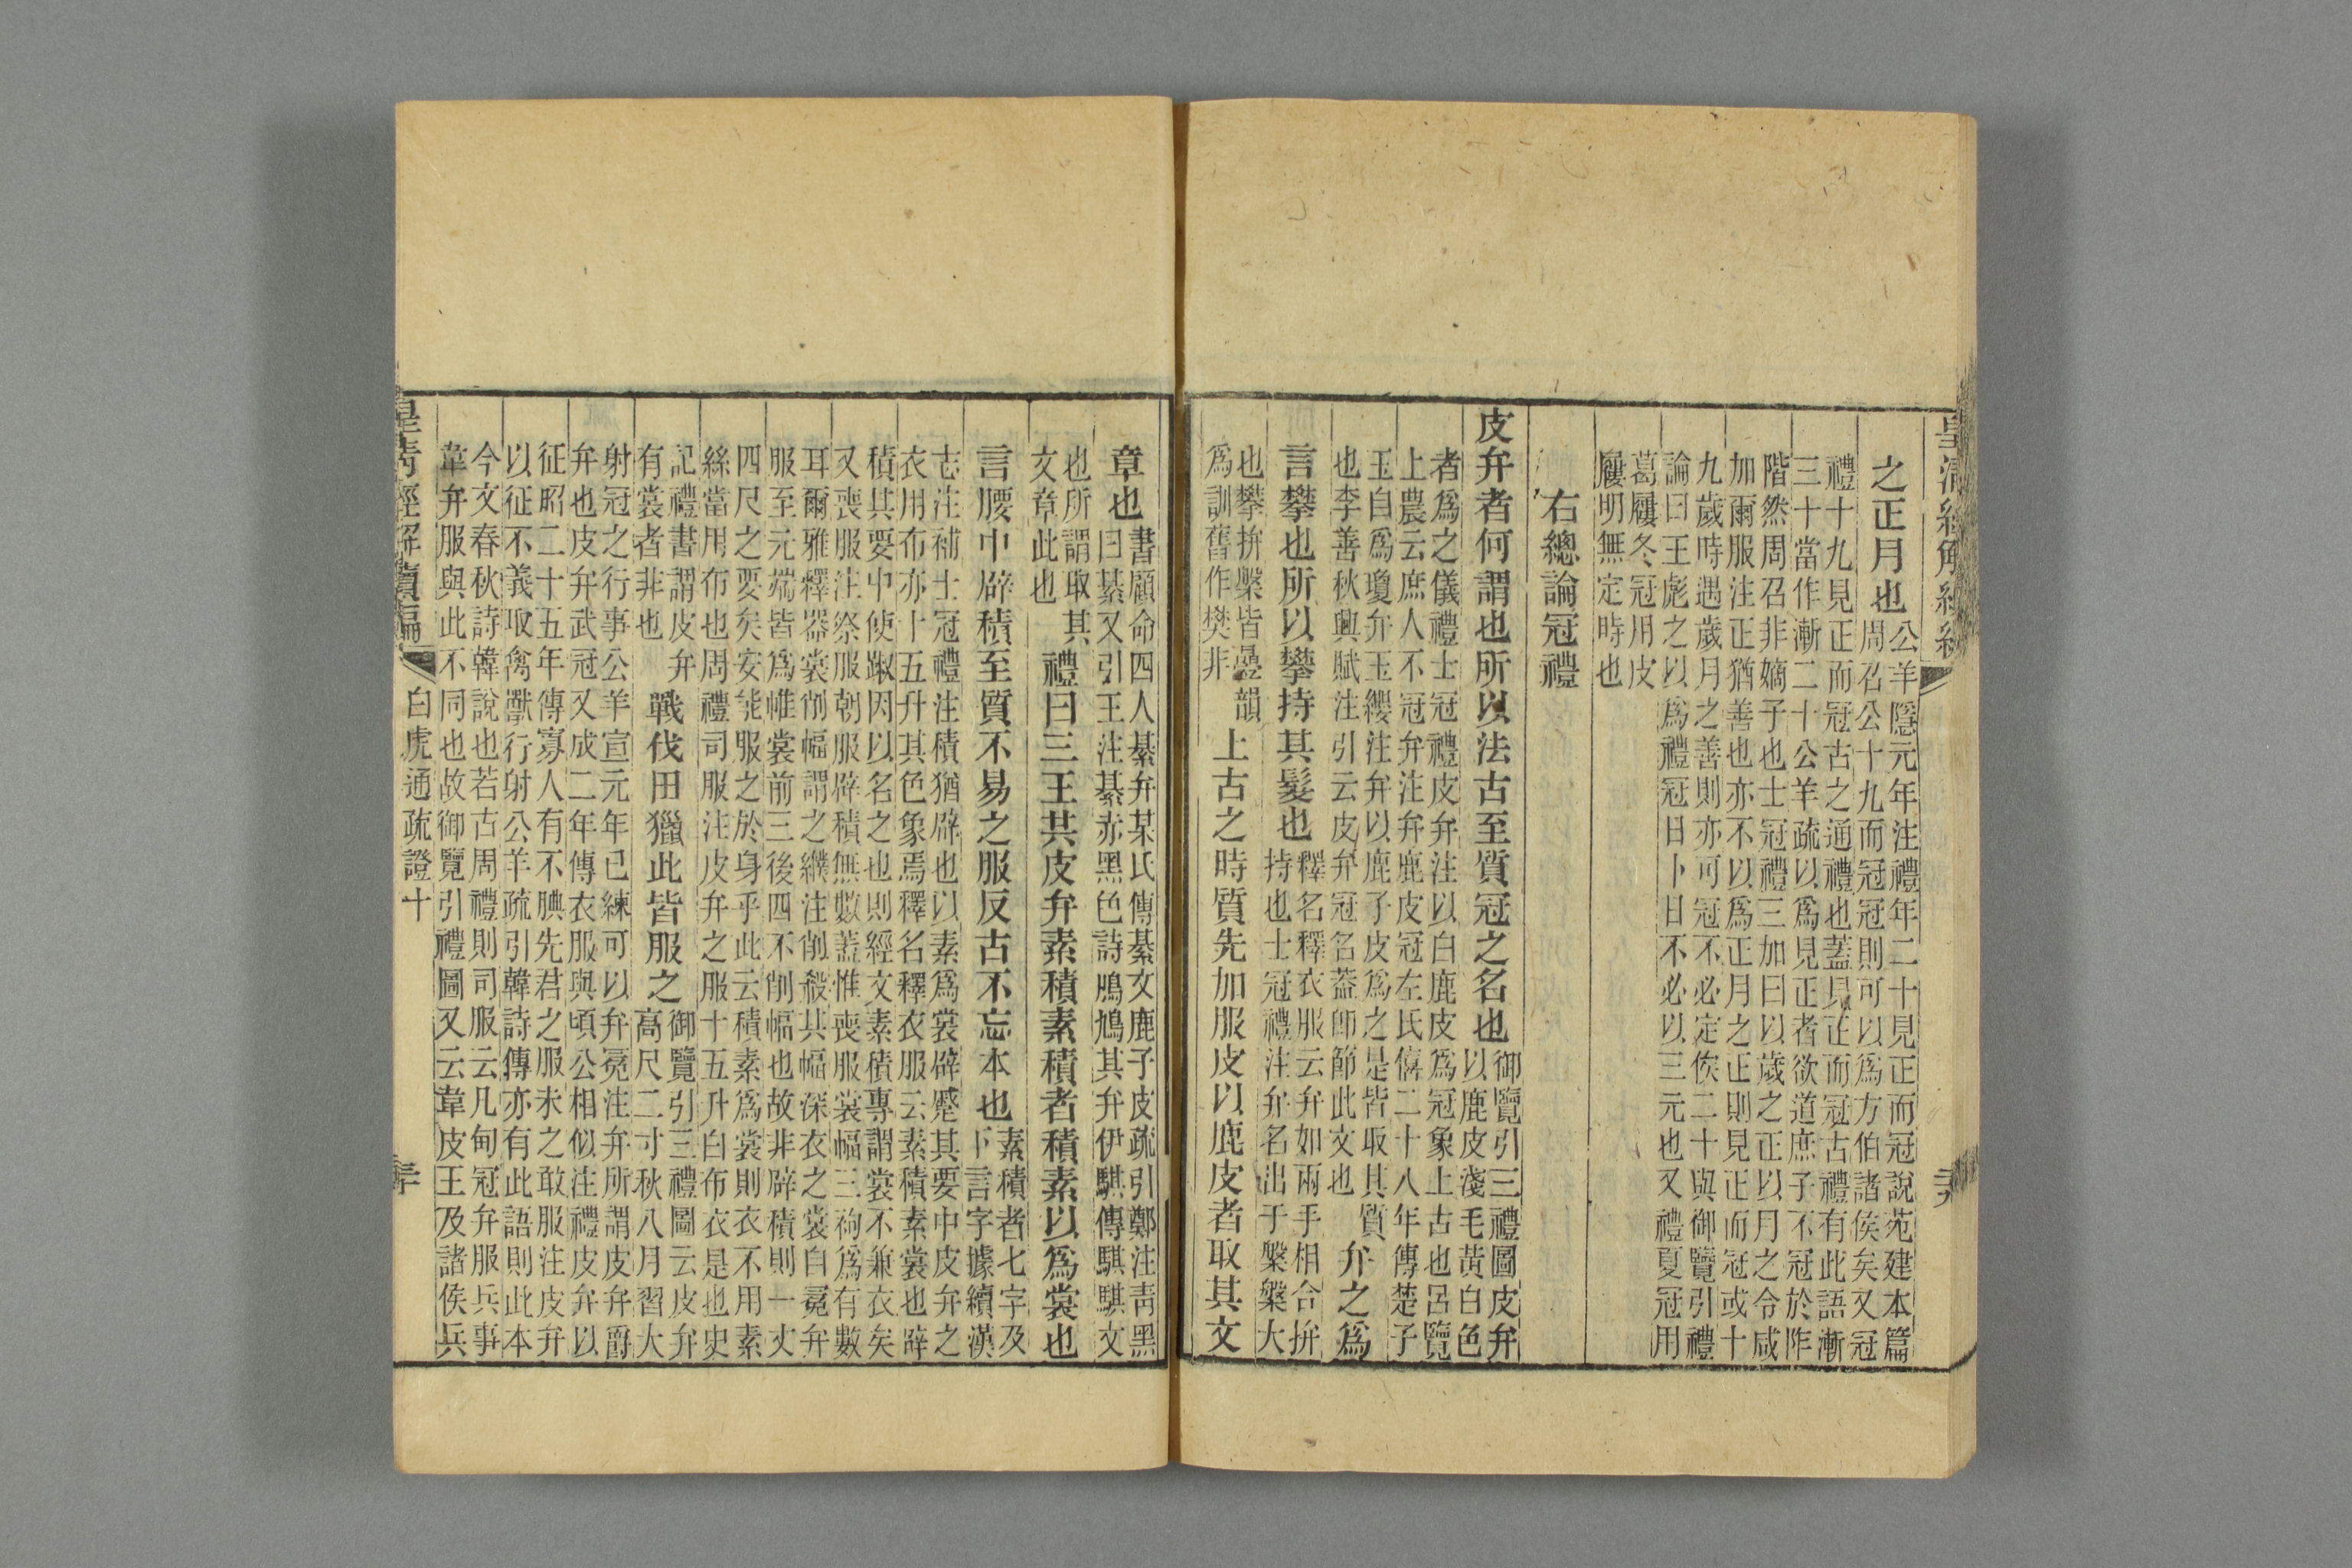 皇清經解續編
之正月也
公羊隱元年注禮年二十見正而冠說苑建本篇
周召公十九而冠冠則可以爲方伯諸侯矣又冠
禮十九見正而冠古之通禮也蓋見正而冠古禮有此語漸
三十當作漸二十公羊疏以爲見正者欲道庶子不冠於阼
階然周召非嫡子也士冠禮三加曰以歲之正以月之令咸
加爾服注正猶善也亦不以爲正月之正則見正而冠或十
九歲時遇歲月之善則亦可冠不必定俟二十與御覽引禮
論曰王彪之以爲禮冠日卜日不必以三元也又禮夏冠用
葛屨冬冠用皮
屨明無定時也
右總論冠禮
皮弁者何謂也所以法古至質冠之名也
御覽引三禮圖皮弁
以鹿皮淺毛黃白色
者爲之儀禮士冠禮皮弁注以白鹿皮爲冠象上古也呂覽
上農云庶人不冠弁注弁鹿皮冠左氏僖二十八年傳楚子
玉自爲瓊弁玉纓注弁以鹿子皮爲之是皆取其質
也李善秋興賦注引云皮弁冠名蓋卽節此文也
弁之爲
言攀也所以攀持其髮也
釋名釋衣服云弁如兩手相合拚
持也士冠禮注弁名出于槃槃大
也攀拚槃皆曡韻
爲訓舊作樊非
上古之時質先加服皮以鹿皮者取其文
章也
書顧命四人綦弁某氏傳綦文鹿子皮疏引鄭注靑黑
曰綦又引王注綦赤黑色詩鳲鳩其弁伊騏傳騏騏文
也所謂取其
文章此也
禮曰三王共皮弁素積素積者積素以爲裳也
言腰中辟積至質不易之服反古不忘本也
素積者七字及
下言字據續漢
志注補士冠禮注積猶辟也以素爲裳辟蹙其要中皮弁之
衣用布亦十五升其色象焉釋名釋衣服云素積素裳也辟
積其要中使踧因以名之也則經文素積專謂裳不兼衣矣
又喪服注祭服朝服辟積無數蓋惟喪服裳幅三袧爲有數
耳爾雅釋器裳削幅謂之纀注削殺其幅深衣之裳白冕弁
服至元端皆爲帷裳前三後四不削幅也故非辟積則一丈
四尺之要矣安能服之於身乎此云積素爲裳則衣不用素
絲當用布也周禮司服注皮弁之服十五升白布衣是也史
記禮書謂皮弁
有裳者非也
戰伐田獵此皆服之
御覽引三禮圖云皮弁
高尺二寸秋八月習大
射冠之行事公羊宣元年已練可以弁冕注弁所謂皮弁爵
弁也皮弁武冠又成二年傳衣服與頃公相似注禮皮弁以
征昭二十五年傳寡人有不腆先君之服未之敢服注皮弁
以征不義取禽獸行射公羊疏引韓詩傳亦有此語則此本
今文春秋詩韓說也若古周禮則司服云凡甸冠弁服兵事
韋弁服與此不同也故御覽引禮圖又云韋皮王及諸侯兵
皇清經解續編
白虎通疏證十